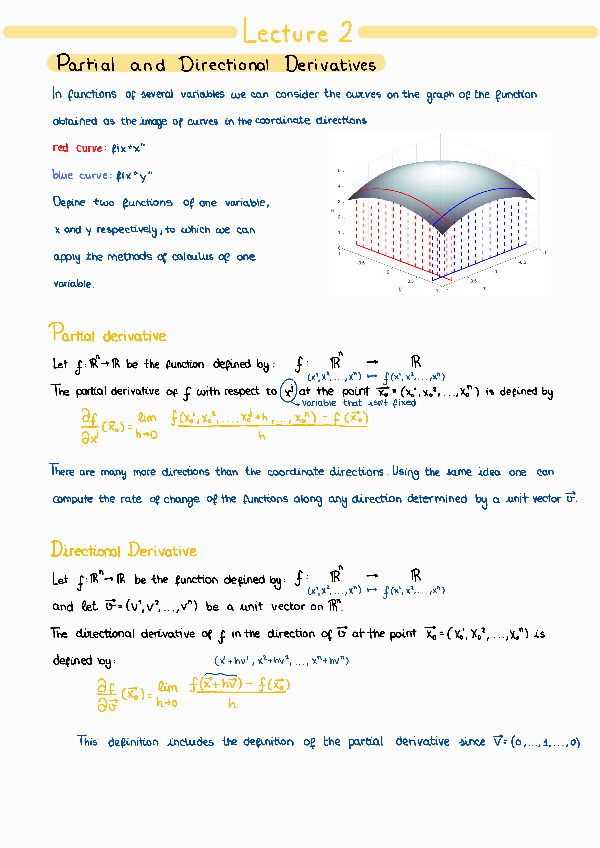 Lecture 2
Partial and Directional Derivatives
In functions of several variables we can consider the curves on the graph of the function
obtained as the image of curves in the coordinate directions
red curve: fix "x"
blue curve: fix "y"
Define two functions of one variable,
x and y respectively, to which we can
apply the methods of calculus of one
variable.
Partial derivative
Let f: ℝⁿ → ℝ be the function defined by: f: ℝⁿ → ℝ
(x¹, x², ..., xⁿ) ↦ f(x¹, x², ..., xⁿ)
The partial derivative of f with respect to xʲ at the point x⃗₀ = (x₀¹, x₀², ..., x₀ⁿ) is defined by
variable that isn't fixed
∂f/∂xʲ (x⃗₀) = lim h→0 f(x₀¹, x₀², ..., x₀ʲ + h, ..., x₀ⁿ) - f(x⃗₀) / h
There are many more directions than the coordinate directions. Using the same idea one can
compute the rate of change of the functions along any direction determined by a unit vector v⃗.
Directional Derivative
Let f: ℝⁿ → ℝ be the function defined by: f: ℝⁿ → ℝ
(x¹, x², ..., xⁿ) ↦ f(x¹, x², ..., xⁿ)
and let v⃗ = (v¹, v², ..., vⁿ) be a unit vector on ℝⁿ.
The directional derivative of f in the direction of v⃗ at the point x⃗₀ = (x₀¹, x₀², ..., x₀ⁿ) is
defined by: (x¹+hv¹, x²+hv², ..., xⁿ+hvⁿ)
∂f/∂v⃗ (x⃗₀) = lim h→0 f(x⃗ + hv⃗) - f(x⃗₀) / h
This definition includes the definition of the partial derivative since v⃗ = (0, ..., 1, ..., 0)